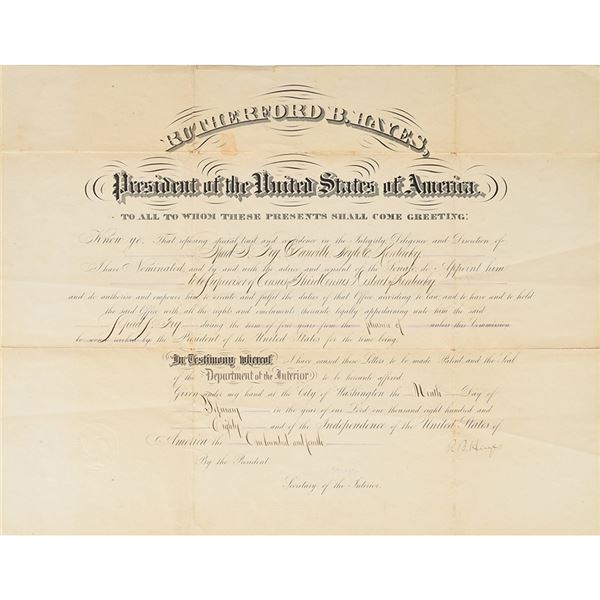 RUTHERFORD B. HAYES,
President of the United States of America.
TO ALL TO WHOM THESE PRESENTS SHALL COME GREETING:
Know ye, That reposing special trust and confidence in the Integrity, Diligence and Discretion of
Speed S. Fry Danville Boyle Co Kentucky
I have Nominated, and by and with the advice and consent of the Senate, do Appoint him
to be Supervisor of Census Third Census District Kentucky
and do authorize and empower him to execute and fulfil the duties of that Office according to law, and to have and to hold
the said Office with all the rights and emoluments thereunto legally appertaining unto him the said
Speed S. Fry during the term of from the unless this Commission
be sooner revoked by the President of the United States for the time being.
In Testimony whereof I have caused these Letters to be made Patent and the Seal
of the Department of the Interior to be hereunto affixed.
Given under my hand at the City of Washington the Ninth Day of
February in the year of our Lord one thousand eight hundred and
Eighty and of the Independence of the United States of
America the One hundred and fourth
R. B. Hayes
By the President
Secretary of the Interior.